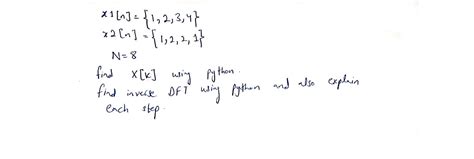 x1[n] = {1,2,3,4}
x2[n] = {1,2,2,1}
N=8
find X[k] using Python.
find inverse DFT using Python and also explain
each step.